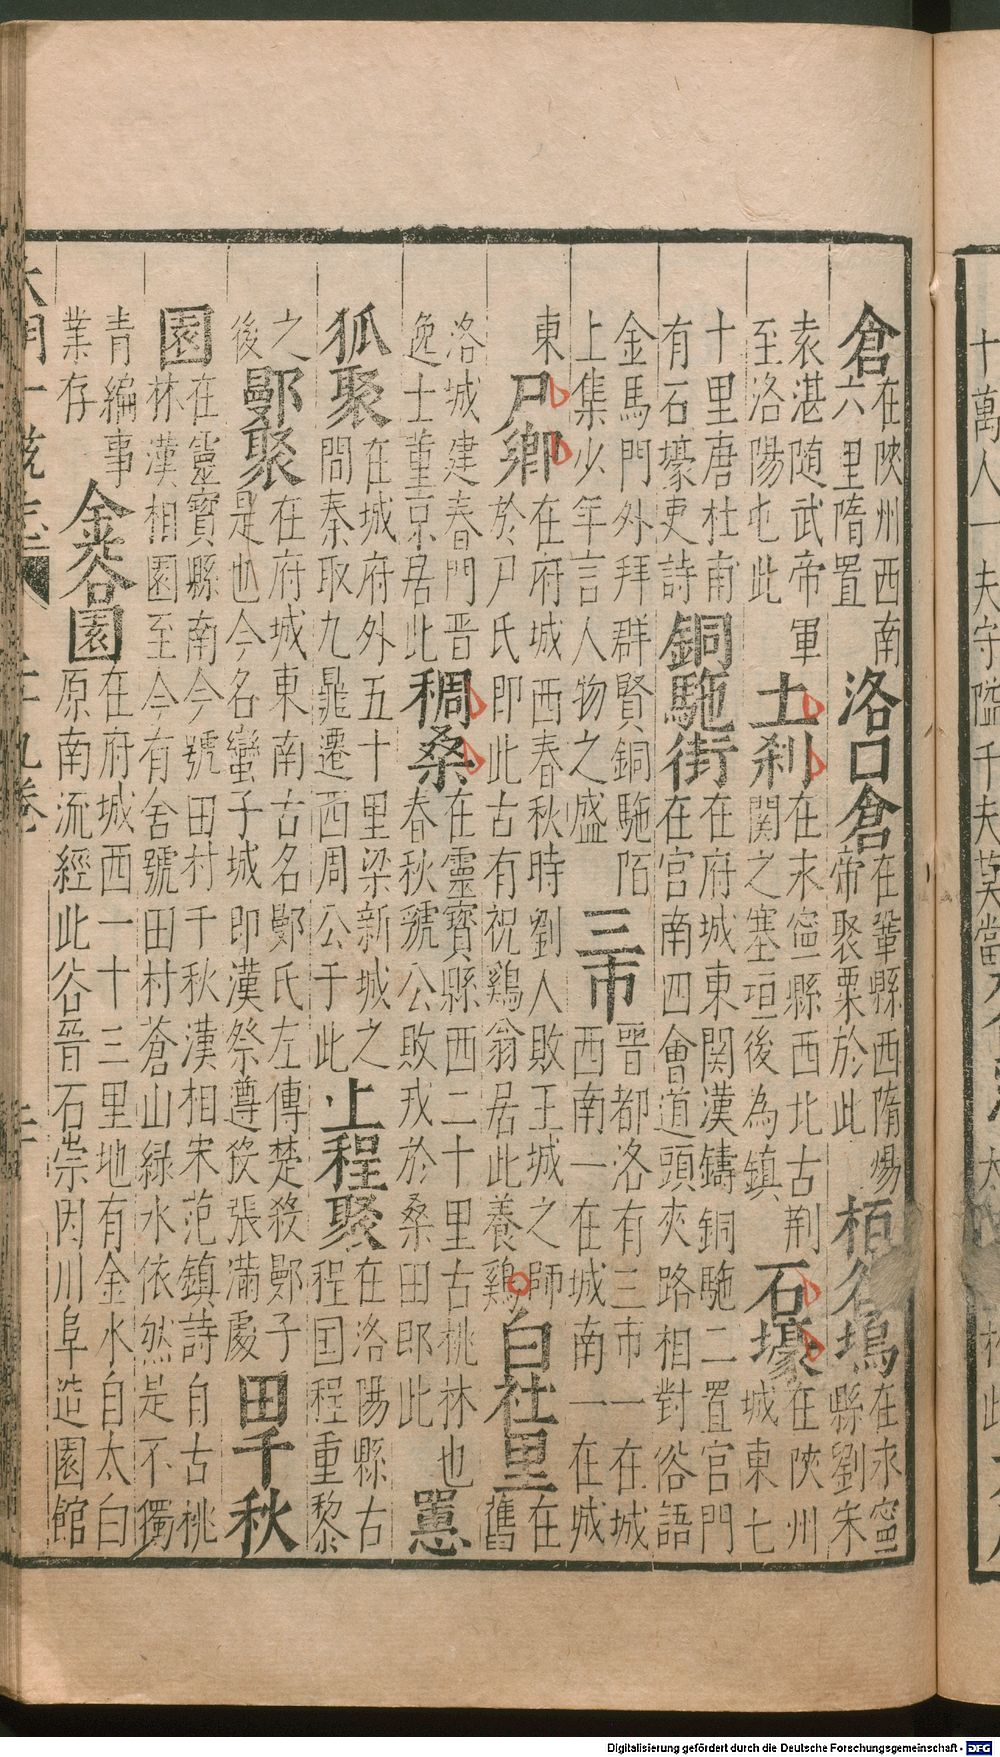 倉在陝州西南六里隋置洛口倉在鞏縣西隋煬帝聚粟於此栢谷塢在永寧縣劉宋
袁湛随武帝軍至洛陽屯此土刹在永寧縣西北古荆關之塞垣後為鎮石壕在陝州城東七
十里唐杜甫有石壕吏詩銅駞街在府城東關漢鑄銅駞二置官門在宫南四會道頭夾路相對俗語
金馬門外拜群賢銅駞陌上集少年言人物之盛三市晋都洛有三市一在城西南一在城南一在城
東尸鄉在府城西春秋時劉人敗王城之師於尸氏即此古有祝鷄翁居此養鷄白社里在舊
洛城建春門晋逸士董京居此稠桑在靈寳縣西二十里古桃林也春秋虢公敗戎於桑田即此
狐聚在城府外五十里梁新城之間秦取九鼎遷西周公于此上程聚在洛陽縣古程国程重黎
之後鄤聚在府城東南古名鄤氏左傳楚殺鄤子是也今名蠻子城即漢祭遵获張滿處田千秋
園在靈寳縣南今號田村千秋漢相宋范鎮詩自古桃林漢相園至今有舍號田村蒼山緑水依然是不獨
青編事業存金谷園在府城西一十三里地有金水自太白原南流經此谷晋石崇因川阜造園館
大明一統志 二十九卷
十萬人一夫守隘千夫莫當
Digitalisierung gefördert durch die Deutsche Forschungsgemeinschaft - DFG